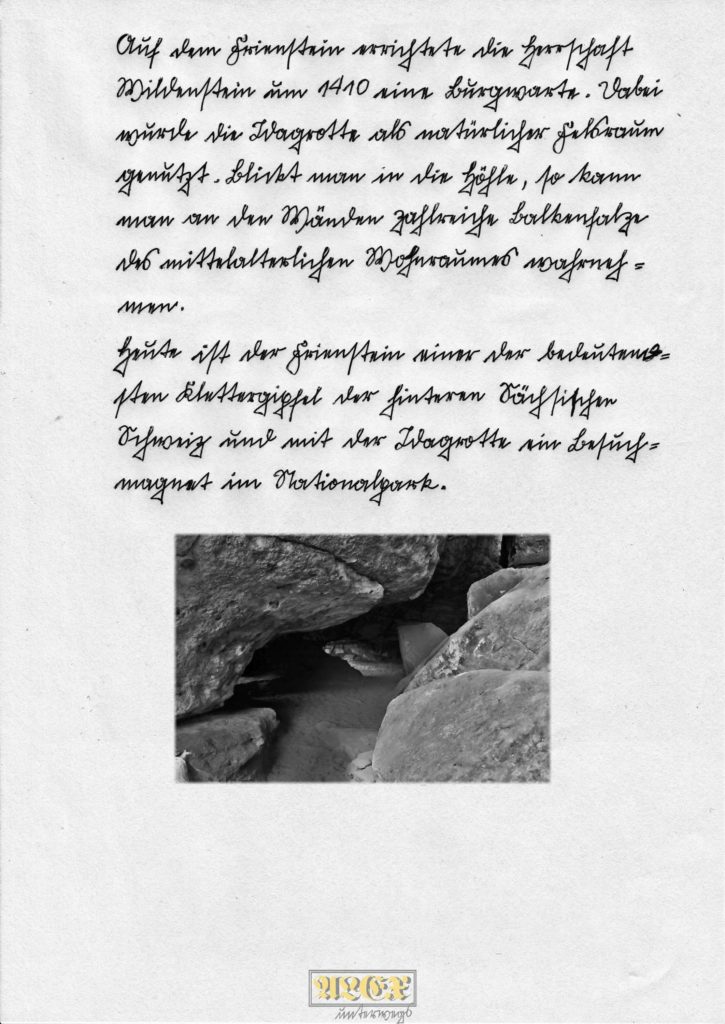 Auf dem Frienstein errichtete die Herrschaft
Wildenstein um 1410 eine Burgwarte. Dabei
wurde die Idagrotte als natürlicher Felsraum
genutzt. Blickt man in die Höhle, so kann
man an den Wänden zahlreiche Balkenfalze
des mittelalterlichen Wohnraumes wahrneh=
men.
Heute ist der Frienstein einer der bedeutend=
sten Klettergipfel der hinteren Sächsischen
Schweiz und mit der Idagrotte ein Besuch=
magnet im Nationalpark.
ALEX
unterwegs